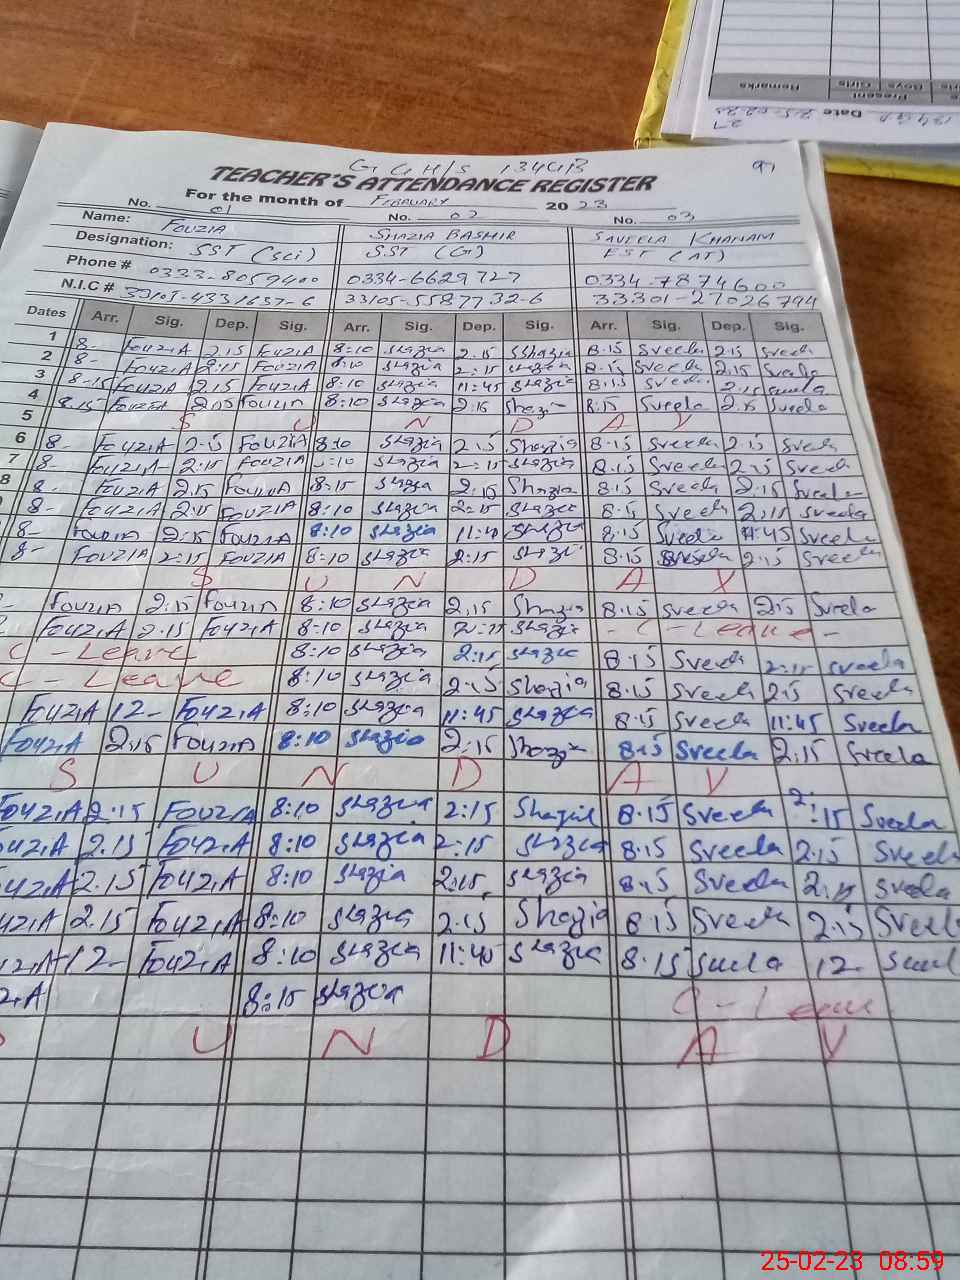 G G H/S 134GB 97
TEACHER'S ATTENDANCE REGISTER
For the month of FEBRUARY 20 23
No. 01 No. 02 No. 03
Name: FOUZIA SHAZIA BASHIR SAVEELA KHANAM
Designation: SST (Sci) SST (G) EST (AT)
Phone # 0333-8059400 0334-6629727 0334-7874600
N.I.C # 33105-5587732-6 33301-27026794
Dates Arr. Sig. Dep. Sig. Arr. Sig. Dep. Sig. Arr. Sig. Dep. Sig.
1 8- FOUZIA 2.15 FOUZIA 8:10 Shazia 2.15 Shazia 8.15 Sveela 2.15 Sveela
2 8- FOUZIA 2:15 FOUZIA 8:10 Shazia 2:15 Shazia 8.15 Sveela 2.15 Sveela
3 8-15 FOUZIA 2.15 FOUZIA 8:10 Shazia 11:45 Shazia 8.15 Sveela Sveela
4 8.15 FOUZIA 2:15 FOUZIA 8:10 Shazia 2:15 Shazia 8:15 Sveela 2.15 Sveela
5 S U N D A Y
6 8- FOUZIA 2-15 FOUZIA 8:10 Shazia 2.15 Shazia 8.15 Sveela 2.15 Sveela
7 8- FOUZIA 2:15 FOUZIA 8:10 Shazia 2:15 Shazia 8.15 Sveela 2.15 Sveela
8 8- FOUZIA 2.15 FOUZIA 8:15 Shazia 2:15 Shazia 8.15 Sveela 2.15 Sveela
8- FOUZIA 2:15 FOUZIA 8:10 Shazia 2:15 Shazia 8.15 Sveela 2.15 Sveela
8- FOUZIA FOUZIA 8:10 Shazia 11:40 Shazia 8.15 Sveela 11:45 Sveela
8- FOUZIA 2:15 FOUZIA 8:10 Shazia 2:15 Shazia 8.15 Sveela 2.15 Sveela
S U N D A Y
FOUZIA 2:15 FOUZIA 8:10 Shazia 2.15 Shazia 8.15 Sveela 2.15 Sveela
FOUZIA 2.15 FOUZIA 8:10 Shazia 2:15 Shazia - C - Leave -
C - Leave 8:10 Shazia 2:15 Shazia 8.15 Sveela 2:15 Sveela
C - Leave 8:10 Shazia 2:15 Shazia 8.15 Sveela 2.15 Sveela
FOUZIA 12- FOUZIA 8:10 Shazia 11:45 Shazia 8.15 Sveela 11:45 Sveela
FOUZIA 2:15 FOUZIA 8:10 Shazia 2:15 Shazia 8.15 Sveela 2:15 Sveela
S U N D A Y
FOUZIA 2:15 FOUZIA 8:10 Shazia 2:15 Shazia 8.15 Sveela 2:15 Sveela
UZIA 2.15 FOUZIA 8:10 Shazia 2:15 Shazia 8.15 Sveela 2.15 Sveela
UZIA 2.15 FOUZIA 8:10 Shazia 2:15 Shazia 8.15 Sveela 2.15 Sveela
UZIA 2.15 FOUZIA 8:10 Shazia 2:15 Shazia 8.15 Sveela 2.15 Sveela
ZIA 12- FOUZIA 8:10 Shazia 11:40 Shazia 8.15 Sveela 12. Sveel
ZIA 8:15 Shazia C - Leave
S U N D A Y
Remarks
Present
Boys
Girls
Date
25-02-23 08:59